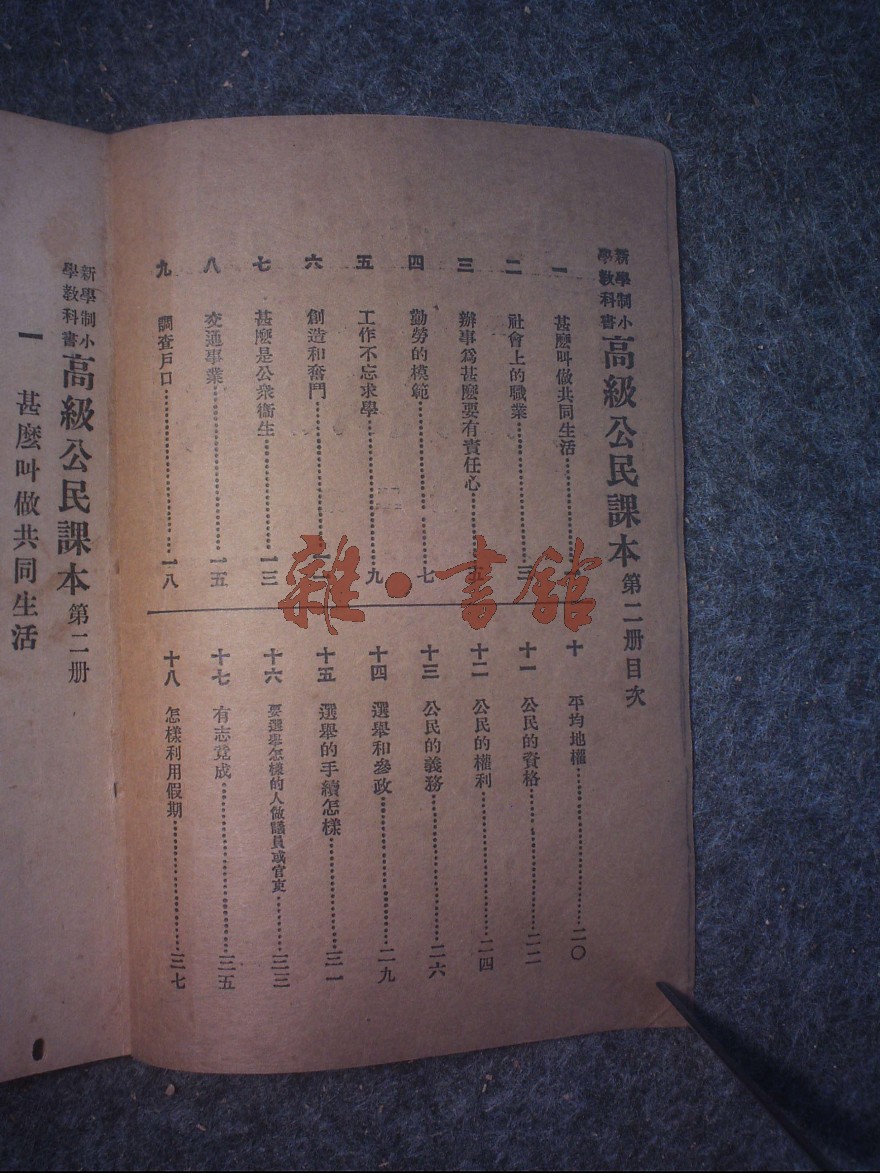 新學制小學教科書 高級公民課本 第二册目次
一 甚麼叫做共同生活
二 社會上的職業 三
三 辦事爲甚麼要有責任心 五
四 勤勞的模範 七
五 工作不忘求學 九
六 創造和奮鬥
七 甚麼是公衆衞生 一三
八 交通事業 一五
九 調查戶口 一八
十 平均地權 二〇
十一 公民的資格 二二
十二 公民的權利 二四
十三 公民的義務 二六
十四 選舉和參政 二九
十五 選舉的手續怎樣 三一
十六 要選舉怎樣的人做議員或官吏 三三
十七 有志竟成 三五
十八 怎樣利用假期 三七
新學制小學教科書 高級公民課本 第二册
一 甚麼叫做共同生活
雜·書館